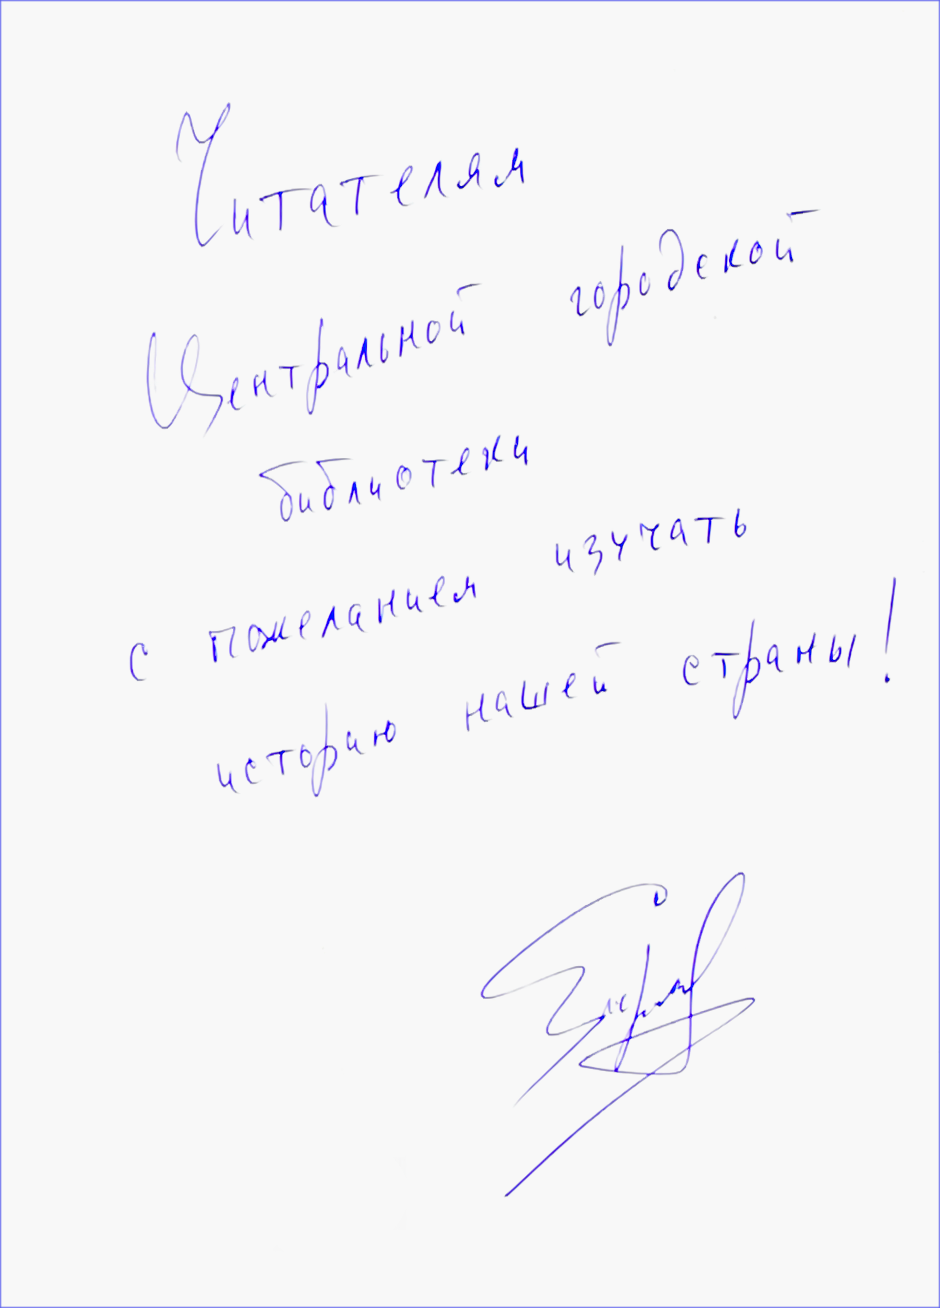 Читателям
Центральной городской
библиотеки
с пожеланием изучать
историю нашей страны!